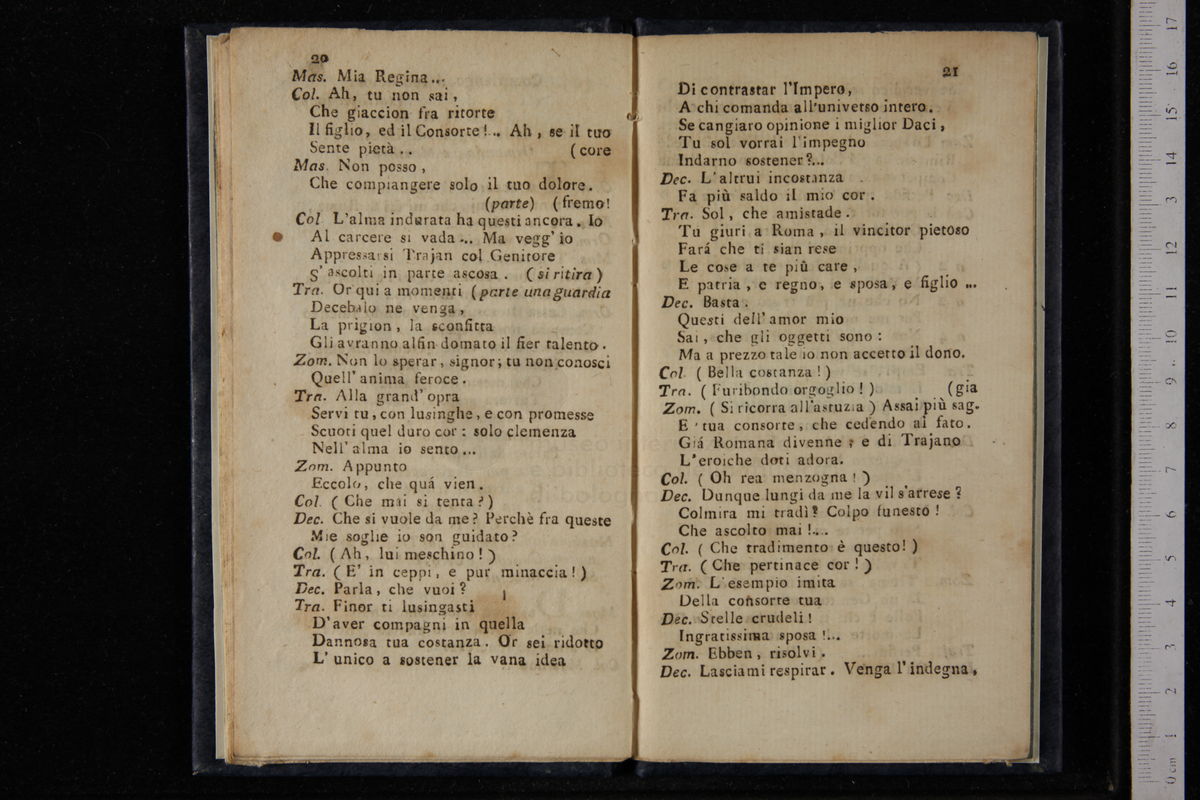 20
Mas. Mia Regina...
Col. Ah, tu non sai,
Che giaccion fra ritorte
Il figlio, ed il Consorte!... Ah, se il tuo
Sente pietà.. (core
Mas. Non posso,
Che compiangere solo il tuo dolore.
(parte) (fremo!
Col L'alma indurata ha questi ancora. Io
Al carcere si vada... Ma vegg' io
Appressarsi Trajan col Genitore
S' ascolti in parte ascosa. (si ritira)
Tra. Or qui a momenti (parte una guardia
Decebalo ne venga,
La prigion, la sconfitta
Gli avranno alfin domato il fier talento.
Zom. Non lo sperar, signor; tu non conosci
Quell' anima feroce.
Tra. Alla grand' opra
Servi tu, con lusinghe, e con promesse
Scuoti quel duro cor: solo clemenza
Nell' alma io sento...
Zom. Appunto
Eccolo, che quá vien.
Col. (Che mai si tenta?)
Dec. Che si vuole da me? Perchè fra queste
Mie soglie io son guidato?
Col. (Ah, lui meschino!)
Tra. (E' in ceppi, e pur minaccia!)
Dec. Parla, che vuoi?
Tra. Finor ti lusingasti
D'aver compagni in quella
Dannosa tua costanza. Or sei ridotto
L' unico a sostener la vana idea
21
Di contrastar l'Impero,
A chi comanda all'universo intero.
Se cangiaro opinione i miglior Daci,
Tu sol vorrai l'impegno
Indarno sostener?...
Dec. L'altrui incostanza
Fa più saldo il mio cor.
Tra. Sol, che amistade.
Tu giuri a Roma, il vincitor pietoso
Fará che ti sian rese
Le cose a te più care,
E patria, e regno, e sposa, e figlio ...
Dec. Basta.
Questi dell' amor mio
Sai, che gli oggetti sono:
Ma a prezzo tale io non accetto il dono.
Col. (Bella costanza!)
Tra. (Furibondo orgoglio!) (gia
Zom. (Si ricorra all'astuzia) Assai più sag-
E' tua consorte, che cedendo al fato.
Giá Romana divenne; e di Trajano
L'eroiche doti adora.
Col. (Oh rea menzogna!)
Dec. Dunque lungi da me la vil s'arrese?
Colmira mi tradì? Colpo funesto!
Che ascolto mai!...
Col. (Che tradimento è questo!)
Tra. (Che pertinace cor!)
Zom. L'esempio imita
Della consorte tua
Dec. Stelle crudeli!
Ingratissima sposa!...
Zom. Ebben, risolvi.
Dec. Lasciami respirar. Venga l'indegna,